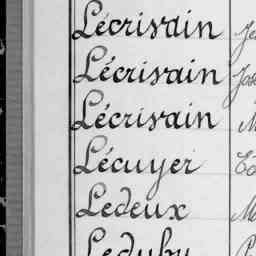 Lécrivain Je
Lécrivain Jos
Lécrivain M
Lécuyer
Ledeux M
Leduby